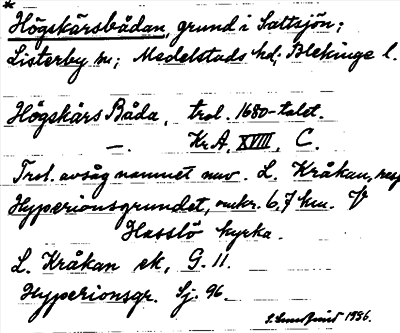 *
Högskärsbådan, grund i Saltsjön;
Listerby sn; Medelstads hd; Blekinge l.
Högskärs Båda, trol. 1680-talet.
—. Kr.A, XVIII, C.
Trol. avsåg namnet nuv. L. Kråkan, resp
Hyperionsgrundet, omkr. 6,7 km. V
Hasslö kyrka.
L. Kråkan ek, G. 11.
Hyperionsgr. Sj. 96.
1936.